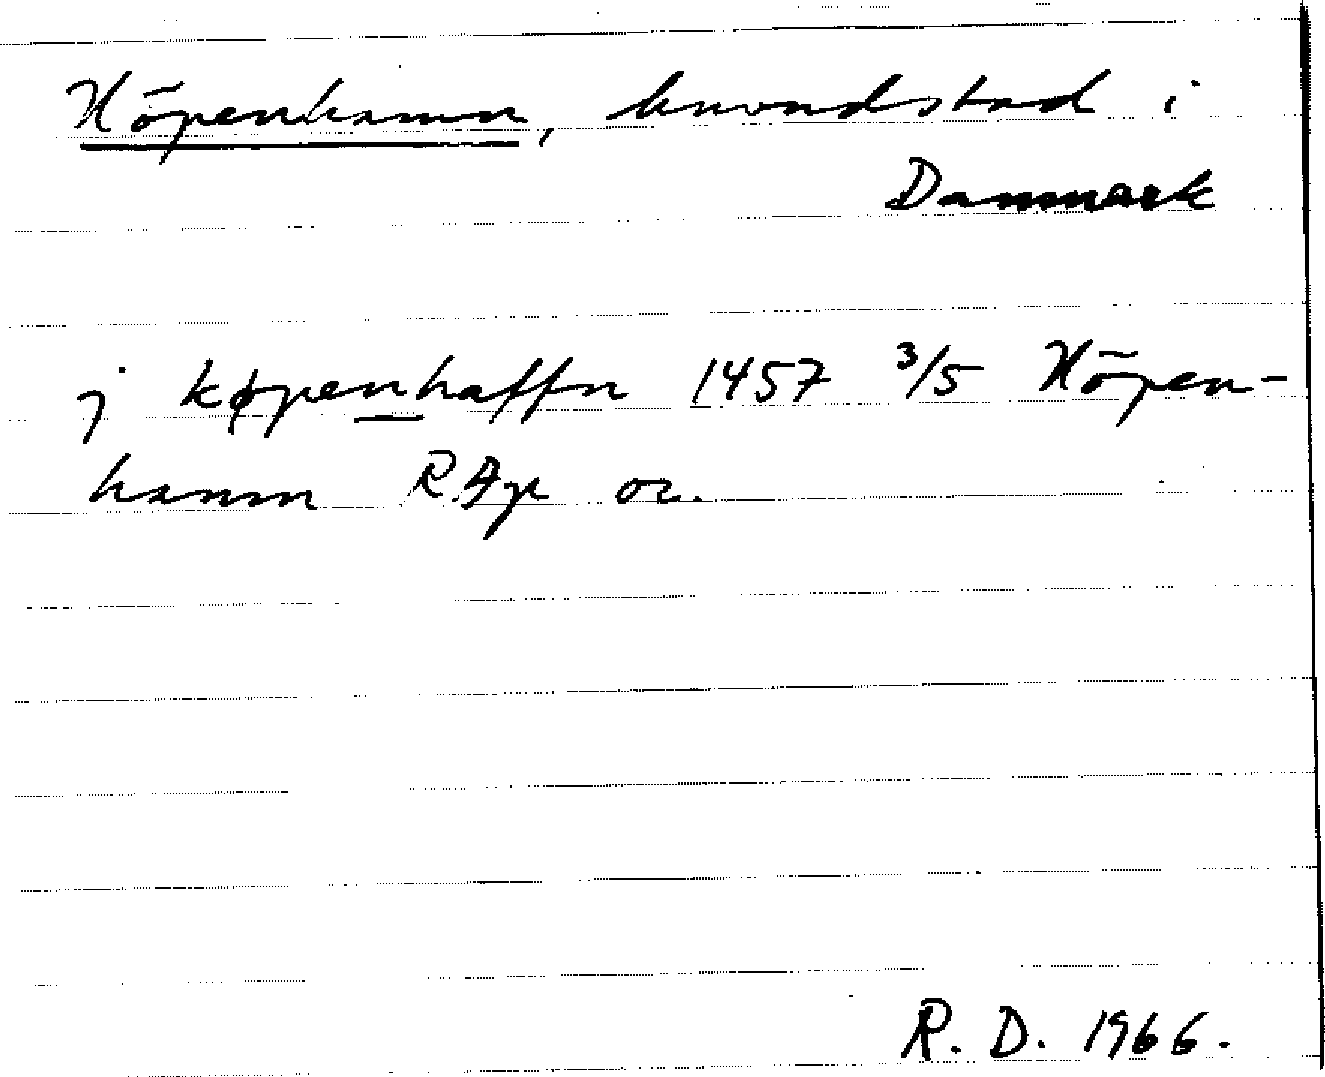 Köpenhamn, huvudstad i
Danmark
j køpenhaffn 1457 3/5 Köpen-
hamn RAp or.
R. D. 1966.